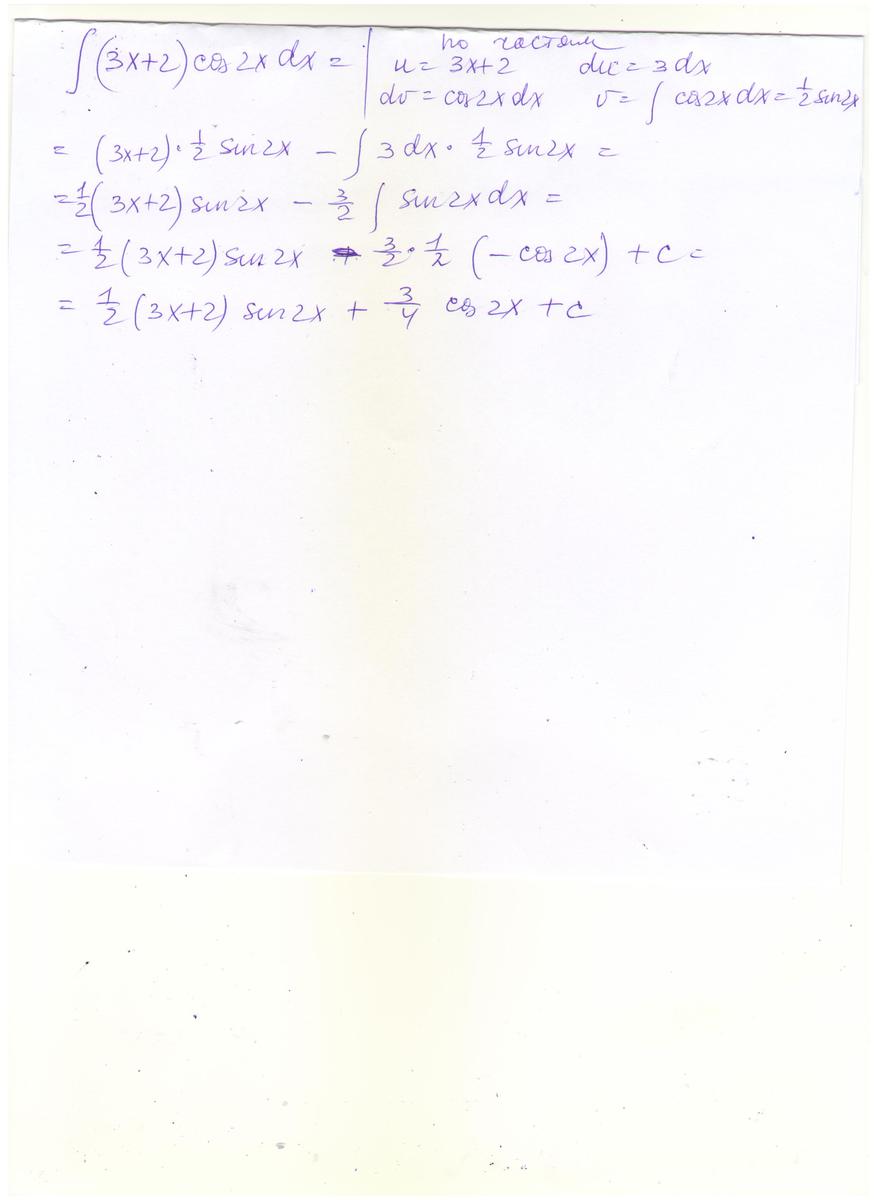 ∫(3x+2) cos 2x dx = | по частям
u = 3x+2 du = 3dx
dv = cos2x dx v = ∫ cos2x dx = 1/2 sin2x
= (3x+2)·1/2 sin2x − ∫ 3dx · 1/2 sin2x =
= 1/2(3x+2) sin2x − 3/2 ∫ sin2x dx =
= 1/2(3x+2) sin 2x − 3/2 · 1/2 (− cos 2x) + c =
= 1/2(3x+2) sin2x + 3/4 cos 2x + c